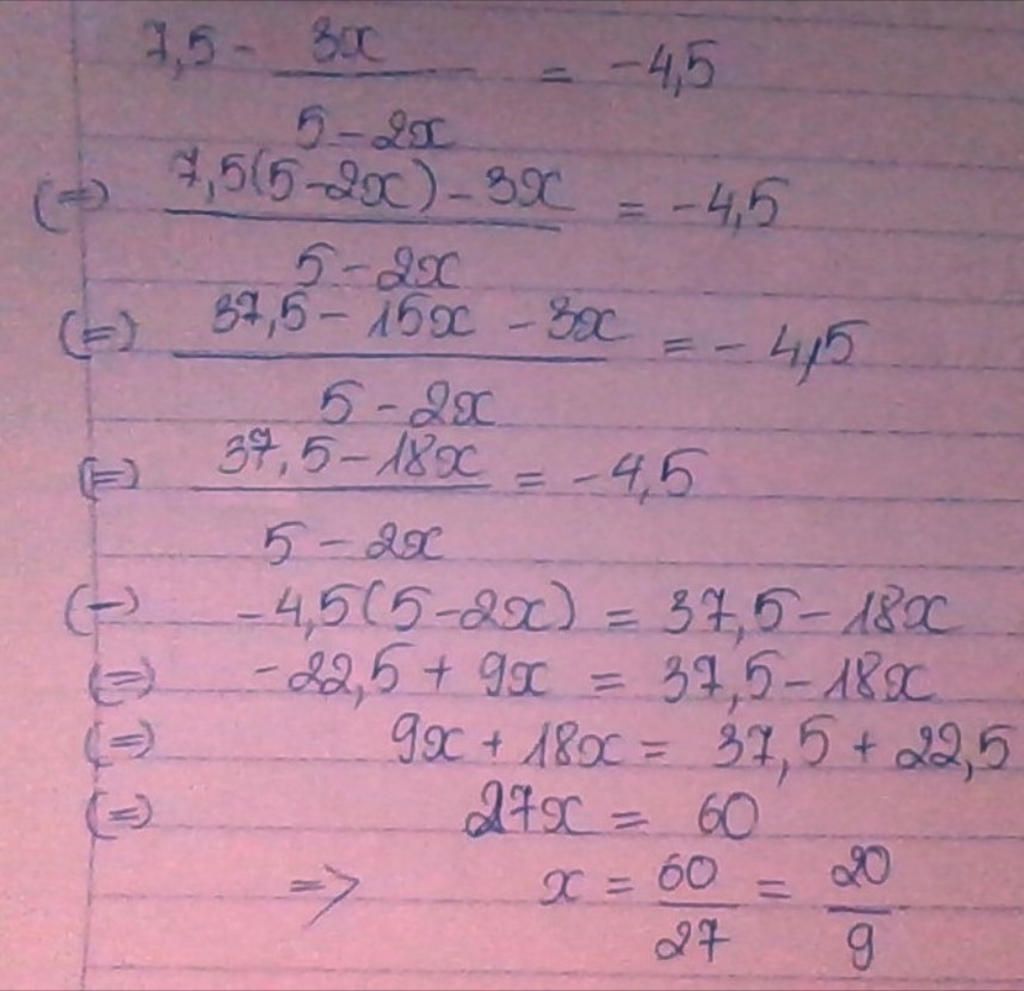 7,5 - 3x / 5 - 2x = -4,5
(=) 7,5(5-2x) - 3x / 5 - 2x = -4,5
(=) 37,5 - 15x - 3x / 5 - 2x = - 4,5
(=) 37,5 - 18x / 5 - 2x = -4,5
(-) -4,5(5-2x) = 37,5 - 18x
(=) -22,5 + 9x = 37,5 - 18x
(=) 9x + 18x = 37,5 + 22,5
(=) 27x = 60
=> x = 60 / 27 = 20 / 9